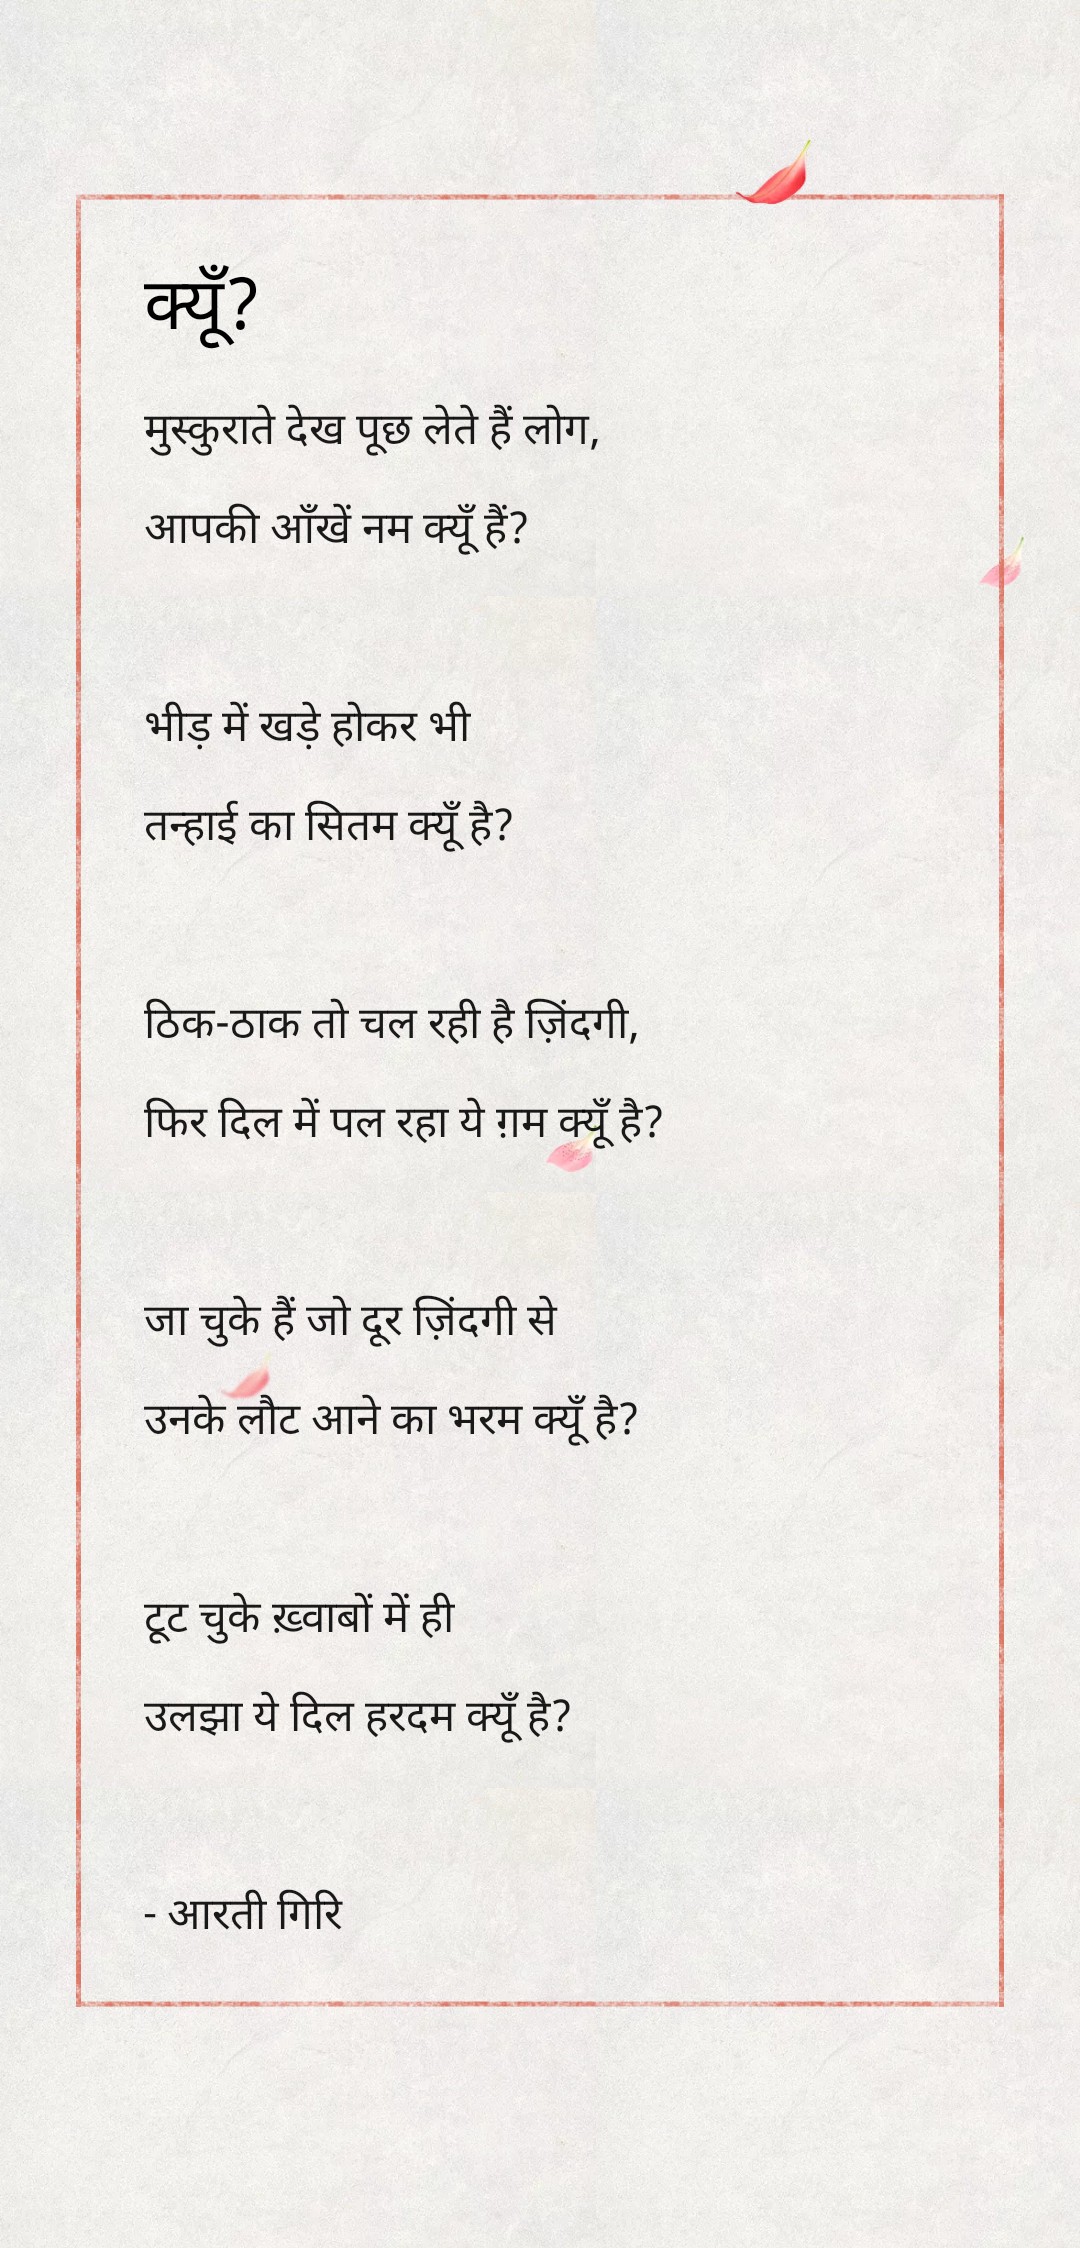 क्यूँ?
मुस्कुराते देख पूछ लेते हैं लोग,
आपकी आँखें नम क्यूँ हैं?
भीड़ में खड़े होकर भी
तन्हाई का सितम क्यूँ है?
ठिक-ठाक तो चल रही है ज़िंदगी,
फिर दिल में पल रहा ये ग़म क्यूँ है?
जा चुके हैं जो दूर ज़िंदगी से
उनके लौट आने का भरम क्यूँ है?
टूट चुके ख़्वाबों में ही
उलझा ये दिल हरदम क्यूँ है?
- आरती गिरि